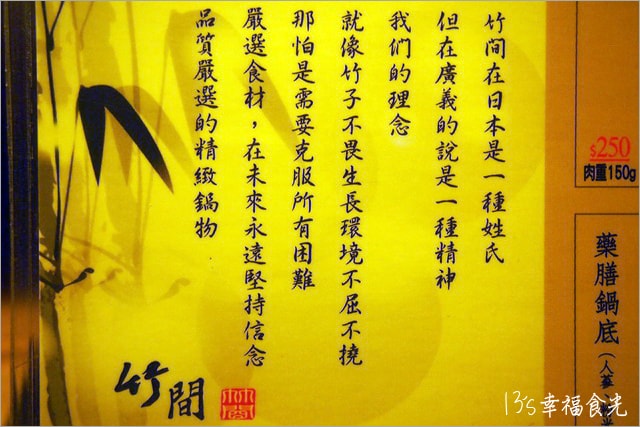 $250
肉重150g
藥膳鍋底(人蔘
竹間在日本是一種姓氏
但在廣義的說是一種精神
我們的理念
就像竹子不畏生長環境不屈不撓
那怕是需要克服所有困難
嚴選食材，在未來永遠堅持信念
品質嚴選的精緻鍋物
竹間
13's幸福食光